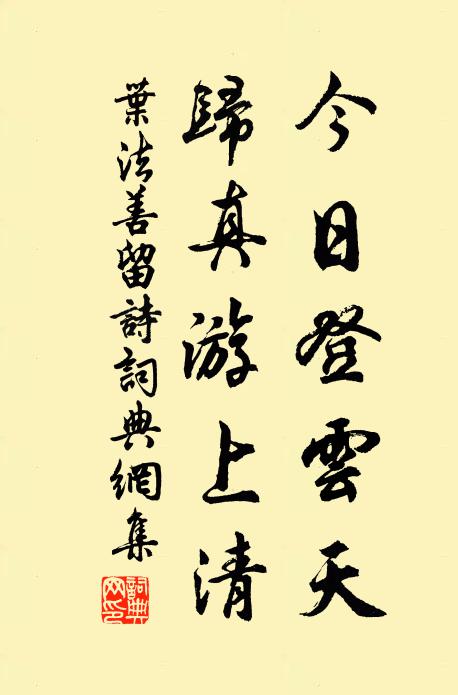 今日登雲天
歸真游上清
葉法善留詩詞典網集
詞典网印